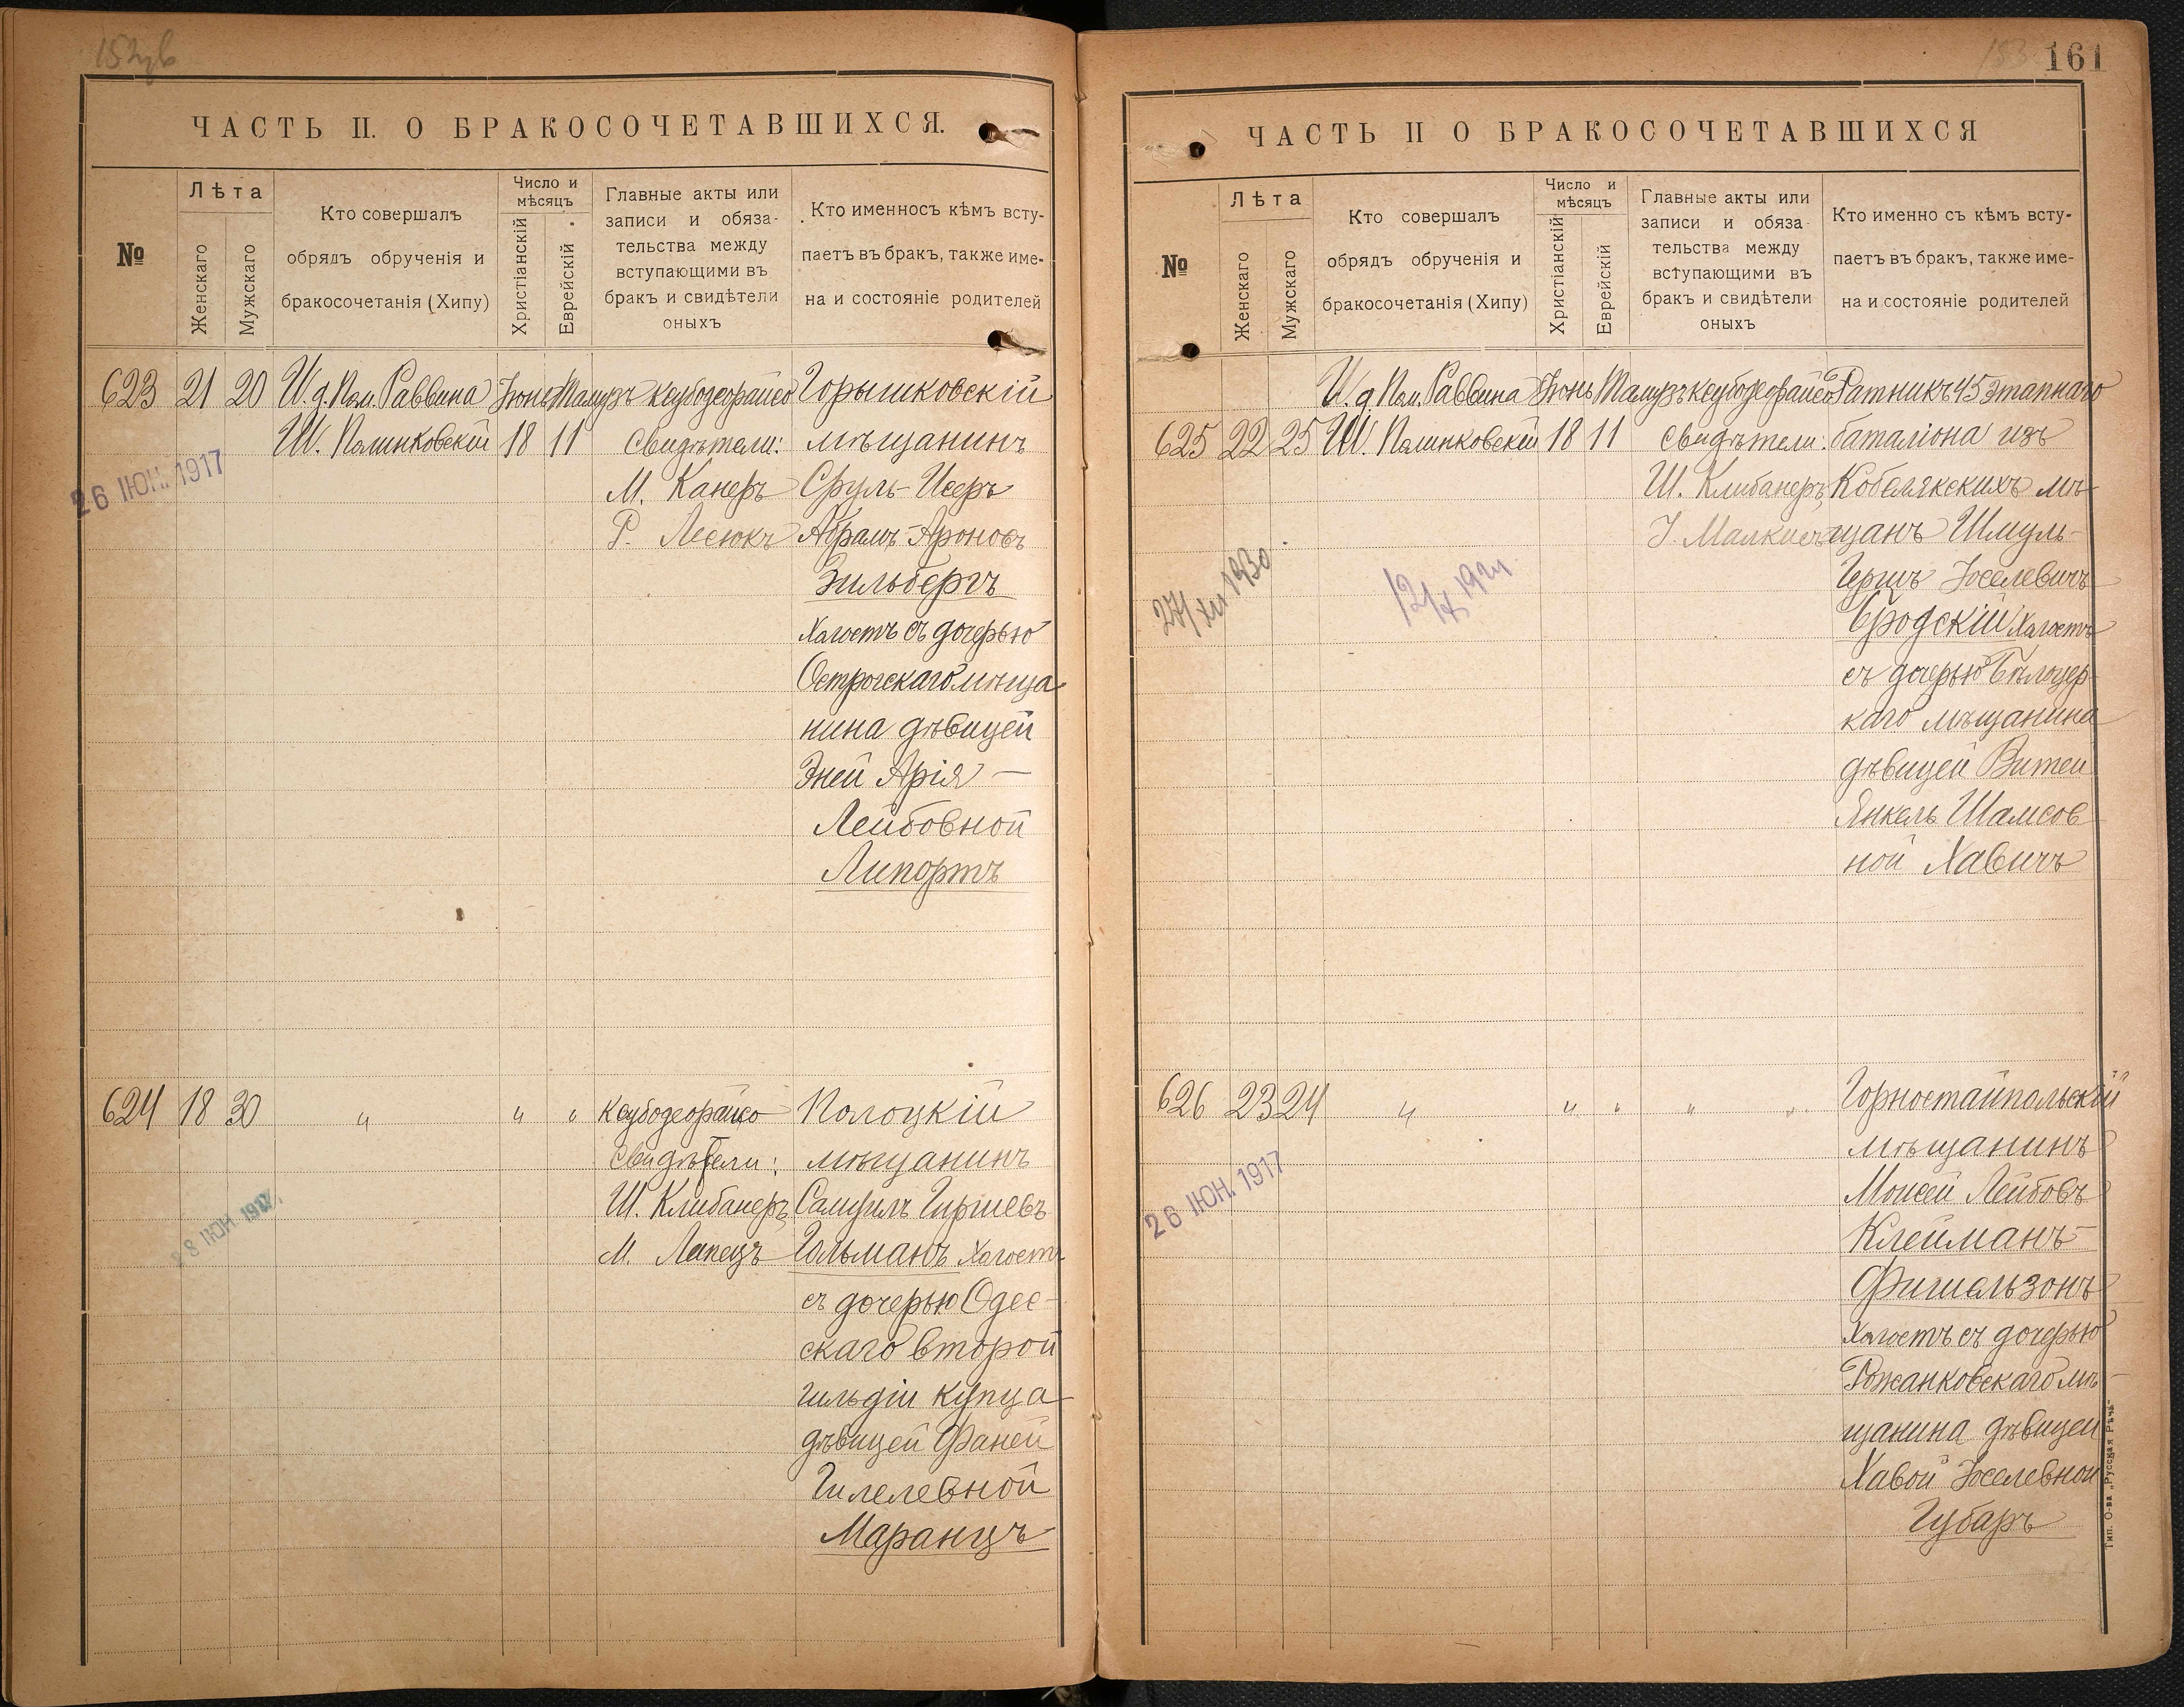 ЧАСТЬ II. О БРАКОСОЧЕТАВШИХСЯ.
№
Лѣта
Женскаго
Мужскаго
Кто совершалъ
обрядъ обрученія и
бракосочетанія (Хипу)
Число и
мѣсяцъ
Христіанскій
Еврейскій
Главные акты или
записи и обяза-
тельства между
вступающими въ
бракъ и свидѣтели
оныхъ
Кто именносъ кѣмъ всту-
паетъ въ бракъ, также име-
на и состояніе родителей
623 21 20 И. д. Пом. Раввина Іюнь Тамузъ Ксубодеорайсо Горышковскій
Ш. Полинковскій 18 11 Свидѣтели: мѣщанинъ
26 ІЮН. 1917
М. Канеръ Сруль-Исеръ
Р. Лесюкъ Абрамъ-Ароновъ
Зильбергъ
Холостъ съ дочерью
Острогскаго мѣща
нина дѣвицей
Эней Арія-
Лейбовной
Липортъ
624 18 30 " " " Ксубодеорайсо Полоцкій
Свидѣтели: мѣщанинъ
Ш. Клибанеръ Самуилъ Гиршевъ
28 ІЮН. 1917
М. Лапецъ Гольманъ Холостъ
съ дочерью Одес-
скаго второй
гильдіи купца
дѣвицей Фаней
Гилелевной
Маранцъ
161
ЧАСТЬ II О БРАКОСОЧЕТАВШИХСЯ
№
Лѣта
Женскаго
Мужскаго
Кто совершалъ
обрядъ обрученія и
бракосочетанія (Хипу)
Число и
мѣсяцъ
Христіанскій
Еврейскій
Главные акты или
записи и обяза-
тельства между
вступающими въ
бракъ и свидѣтели
оныхъ
Кто именно съ кѣмъ всту-
паетъ въ бракъ, также име-
на и состояніе родителей
И. д. Пом. Раввина Іюнь Тамузъ Ксубодеорайсо Ратникъ 45 этапнаго
625 22 25 Ш. Полинковскій 18 11 Свидѣтели: баталіона изъ
Ш. Клибанеръ Кобелякскихъ мѣ
І. Малкисъ щанъ Шмуль-
27/XII 1930
Герцъ Іоселевичъ
Бродскій Холостъ
съ дочерью Бѣлоцер
каго мѣщанина
дѣвицей Витей
Янкель Шамсов
ной Хавичъ
626 23 24 " " " " " Горностайпольскій
мѣщанинъ
26 ІЮН. 1917
Моисей Лейбовъ
Клейманъ-
Фишельзонъ
Холостъ съ дочерью
Рожанковскаго мѣ-
щанина дѣвицей
Хавой Іоселевной
Губаръ
Тип. О-ва „Русская Рѣчь“